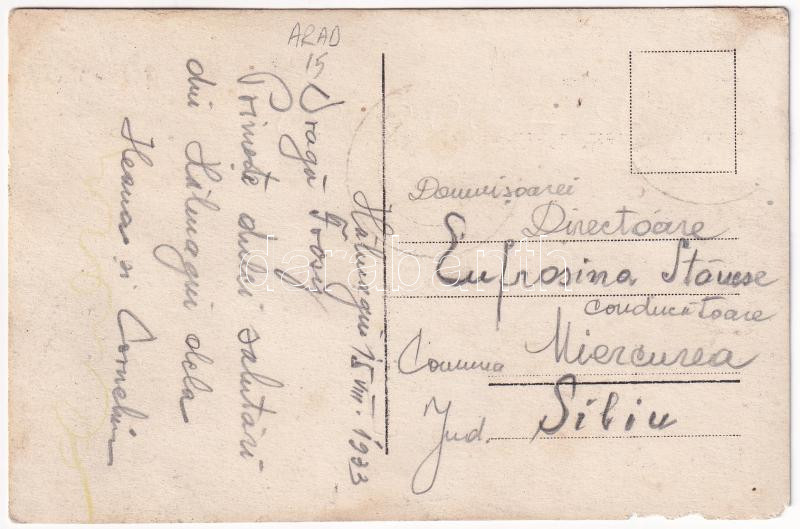 ARAD
15
Hălmagiu 15 VIII. 1933
Dragă Frosy
Primește dulci salutări
din Hălmagiu dela
Ileana și Corneliu
Domnișoarei
Directoare
Eufrosina Stănese
conducătoare
Comuna Miercurea
Jud. Sibiu
darabanth